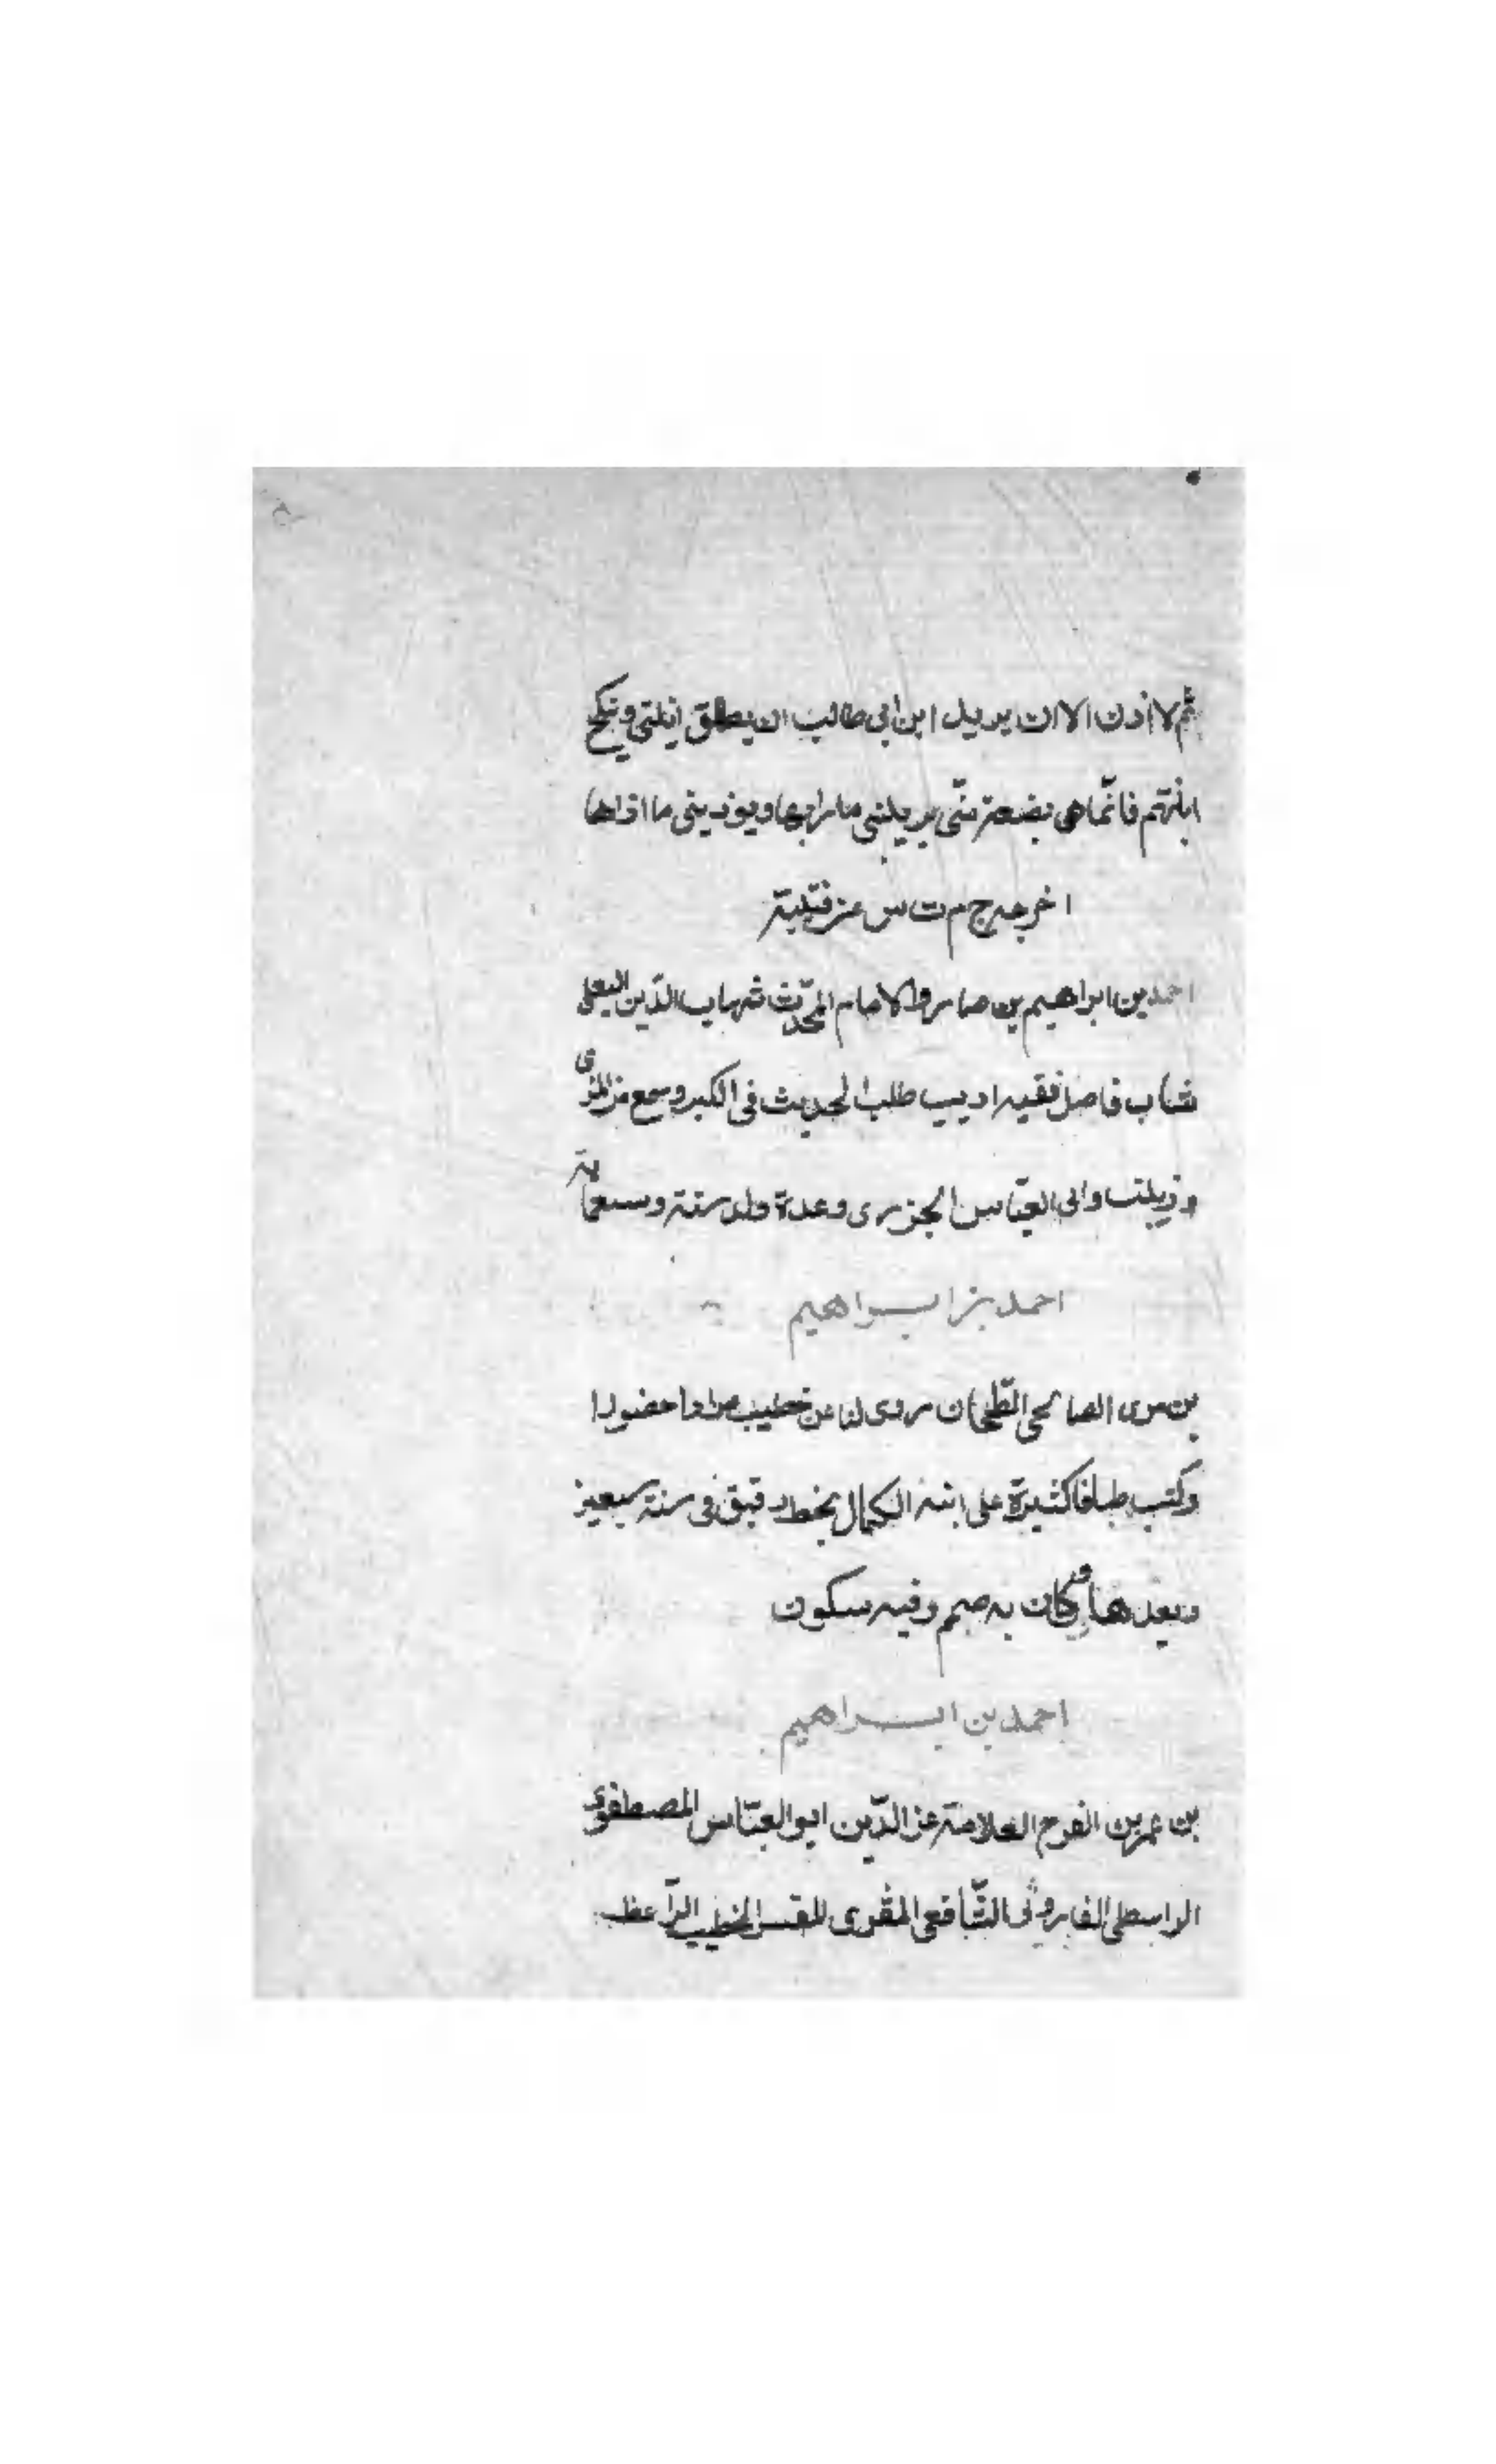 ثم لا اذن الا ان يريد ابن ابي طالب ان يطلق ابنتي وينكح
ابنتهم فانّما هي بضعة منّي يريبني ما رابها ويوذيني ما اذاها
اخرجه خ م ت س عن قتيبة
احمد بن ابراهيم بن صارو الامام المحدّث شهاب الدّين البعلي
شاب فاضل فقيه اديب طلب الحديث في الكبر وسمع من المزي
وزينب وابي العبّاس الجزري وعدة ولد سنة وسبعماية
احمد بن ابراهيم
بن مري الصالحي الطّحان روى لنا عن خطيب مردا حضورا
وكتب طباقا كثيرة على ابنة الكمال بخط دقيق في سنة سبعين
وبعدها وكان به صمم وفيه سكون
احمد بن ابراهيم
بن عمر بن الفرج العلامة عز الدّين ابو العبّاس المصطفوي
الواسطي الفاروثي الشّافعي المقرى المفسر الخطيب الواعظ